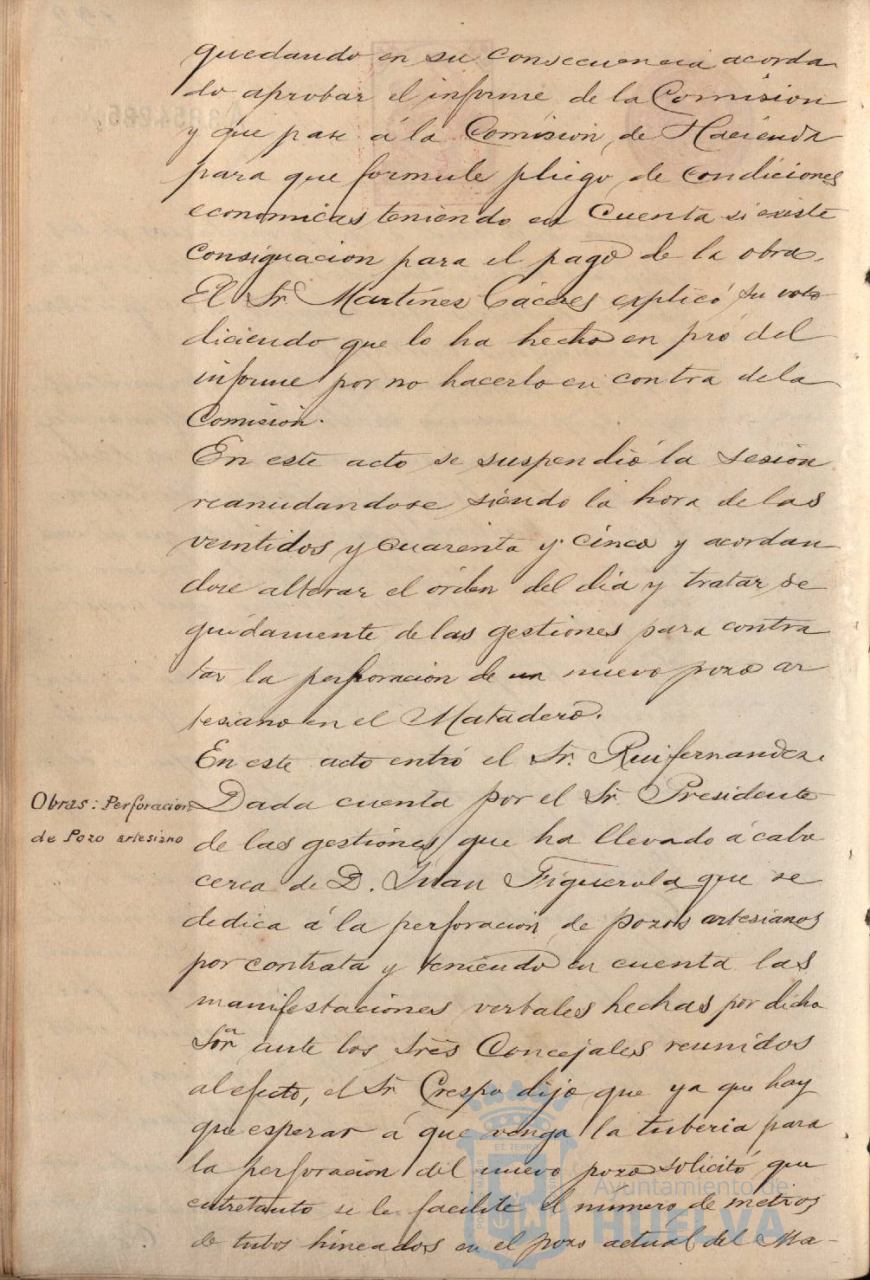 quedando en su consecuencia acorda
do aprobar el informe de la Comision
y que pase á la Comision de Hacienda
para que formule pliego de condiciones
economicas teniendo en cuenta si existe
consignacion para el pago de la obra.
El Sr. Martinez Cáceres explicó su voto
diciendo que lo ha hecho en pró del
informe por no hacerlo en contra de la
Comision.
En este acto se suspendió la sesion
reanudandose siendo la hora de las
veintidos y cuarenta y cinco y acordan
dose alterar el órden del dia y tratar se
guidamente de las gestiones para contra
tar la perforacion de un nuevo pozo ar
tesiano en el Matadero.
En este acto entró el Sr. Ruifernandez.
Obras: Perforacion
de Pozo artesiano
Dada cuenta por el Sr. Presidente
de las gestiones que ha llevado á cabo
cerca de D. Juan Figuerola que se
dedica á la perforacion de pozos artesianos
por contrata y teniendo en cuenta las
manifestaciones verbales hechas por dicho
Sor. ante los Sres Concejales reunidos
al efecto, el Sr. Crespo dijo que ya que hay
que esperar á que venga la tuberia para
la perforacion del nuevo pozo solicitó que
entretanto se le facilite el numero de metros
de tubos hincados en el pozo actual del Ma-
Ayuntamiento de
HUELVA